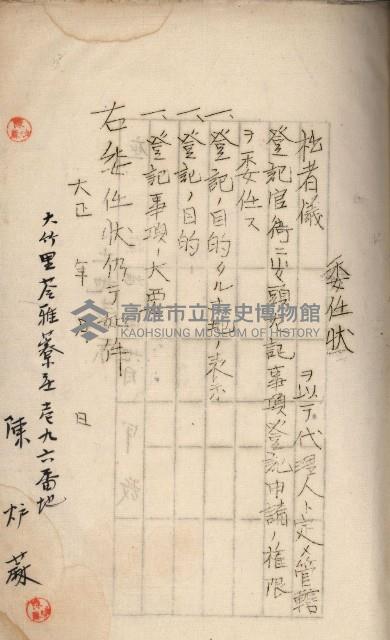 委任状
拙者儀　ヲ以テ代理人ト定メ管轄
登記官衙ニ出頭左記事項登記申請ノ権限
ヲ委任ス
一、登記ノ目的タル土地ノ表示
一、登記ノ目的
一、登記事項ノ大要
右委任状仍テ如件
大正　年　月　日
大竹里苓雅寮庄壱九六番地
陳炉蔴
高雄市立歷史博物館
KAOHSIUNG MUSEUM OF HISTORY